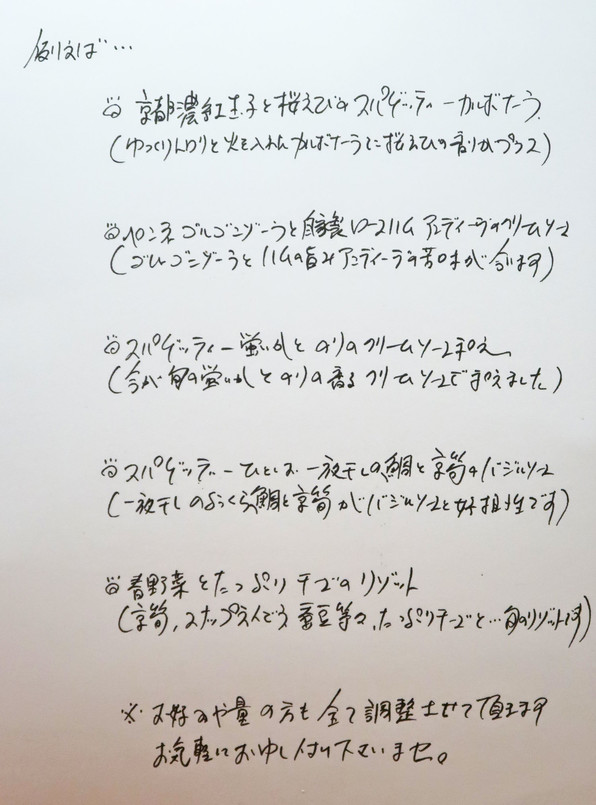 例えば…
京都濃紅玉子と桜えびのスパゲッティーカルボナーラ
(ゆっくりんりと火を入れたカルボナーラに桜えびの香りがプラス)
ペンネゴルゴンゾーラと自家製ロースハム アンディーヴのクリームソース
(ゴルゴンゾーラとハムの旨みアンディーヴの苦味が合います)
スパゲッティー蛍いかとのりのクリームソース和え
(今が旬の蛍いかとのりの香るクリームソースで和えました)
スパゲッティーひとしお一夜干しの鯛と京筍のバジルソース
(一夜干しのふっくら鯛と京筍がバジルソースと好相性です)
春野菜とたっぷりチーズのリゾット
(京筍、スナップえんどう 蚕豆等々、たっぷりチーズと…旬のリゾットです)
※お好みや量の方も全て調整させて頂きます
お気軽にお申し付け下さいませ。